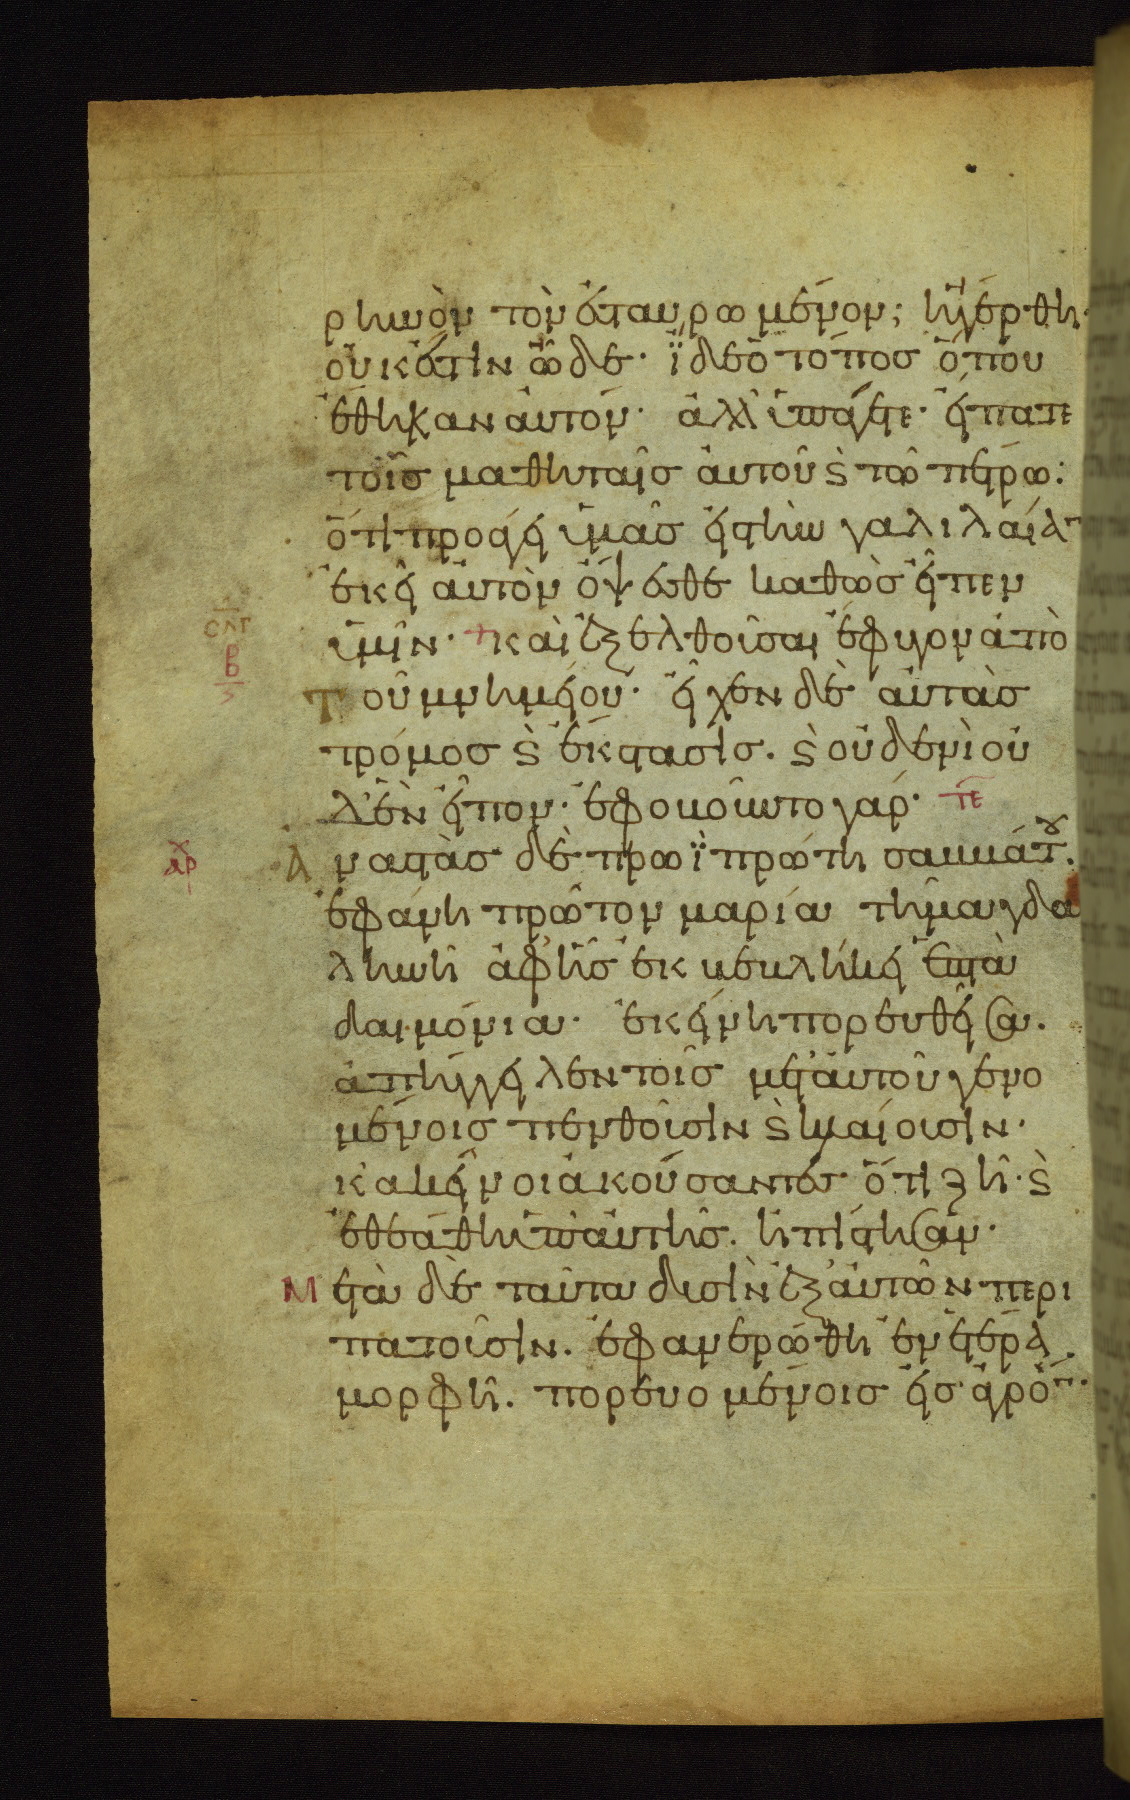 ρηνὸν τὸν ἐσταυρωμένον; ἠγέρθη·
οὐκ ἔστιν ὧδε· ἴδε ὁ τόπος ὅπου
ἔθηκαν αὐτόν· ἀλλ' ὑπάγετε· εἴπατε
τοῖς μαθηταῖς αὐτοῦ ϗ τῶ πέτρω:
ὅτι προάγει ὑμᾶς εἰς τὴν γαλιλαίαν
ἐκεῖ αὐτὸν ὄψεσθε καθὼς εἶπεν
ὑμῖν· καὶ ἐξελθοῦσαι ἔφυγον ἀπὸ
σλγ
β
τοῦ μνημείου· εἶχεν δὲ αὐτὰς
τρόμος ϗ ἔκστασις. ϗ οὐδενὶ οὐ
δὲν εἶπον· ἐφοβοῦντο γάρ· τε
αρχ
Ἀναστὰς δὲ πρωῒ πρώτη σαββάτου.
ἐφάνη πρῶτον μαρία τῆ μαγδα
ληνῆ ἀφ' ἧς ἐκβεβλήκει ἑπτὰ
δαιμόνια· ἐκείνη πορευθεῖσα.
ἀπήγγειλεν τοῖς μετ' αὐτοῦ γενο
μένοις πενθοῦσιν ϗ κλαίουσιν·
κἀκεῖνοι ἀκούσαντες ὅτι ζῆ· ϗ
ἐθεάθη ὑπ' αὐτῆς. ἠπίστησαν·
Μετὰ δὲ ταῦτα δυσὶν ἐξ αὐτῶν περι
πατοῦσιν. ἐφανερώθη ἐν ἑτέρα
μορφῆ. πορευομένοις εἰς ἀγρόν·